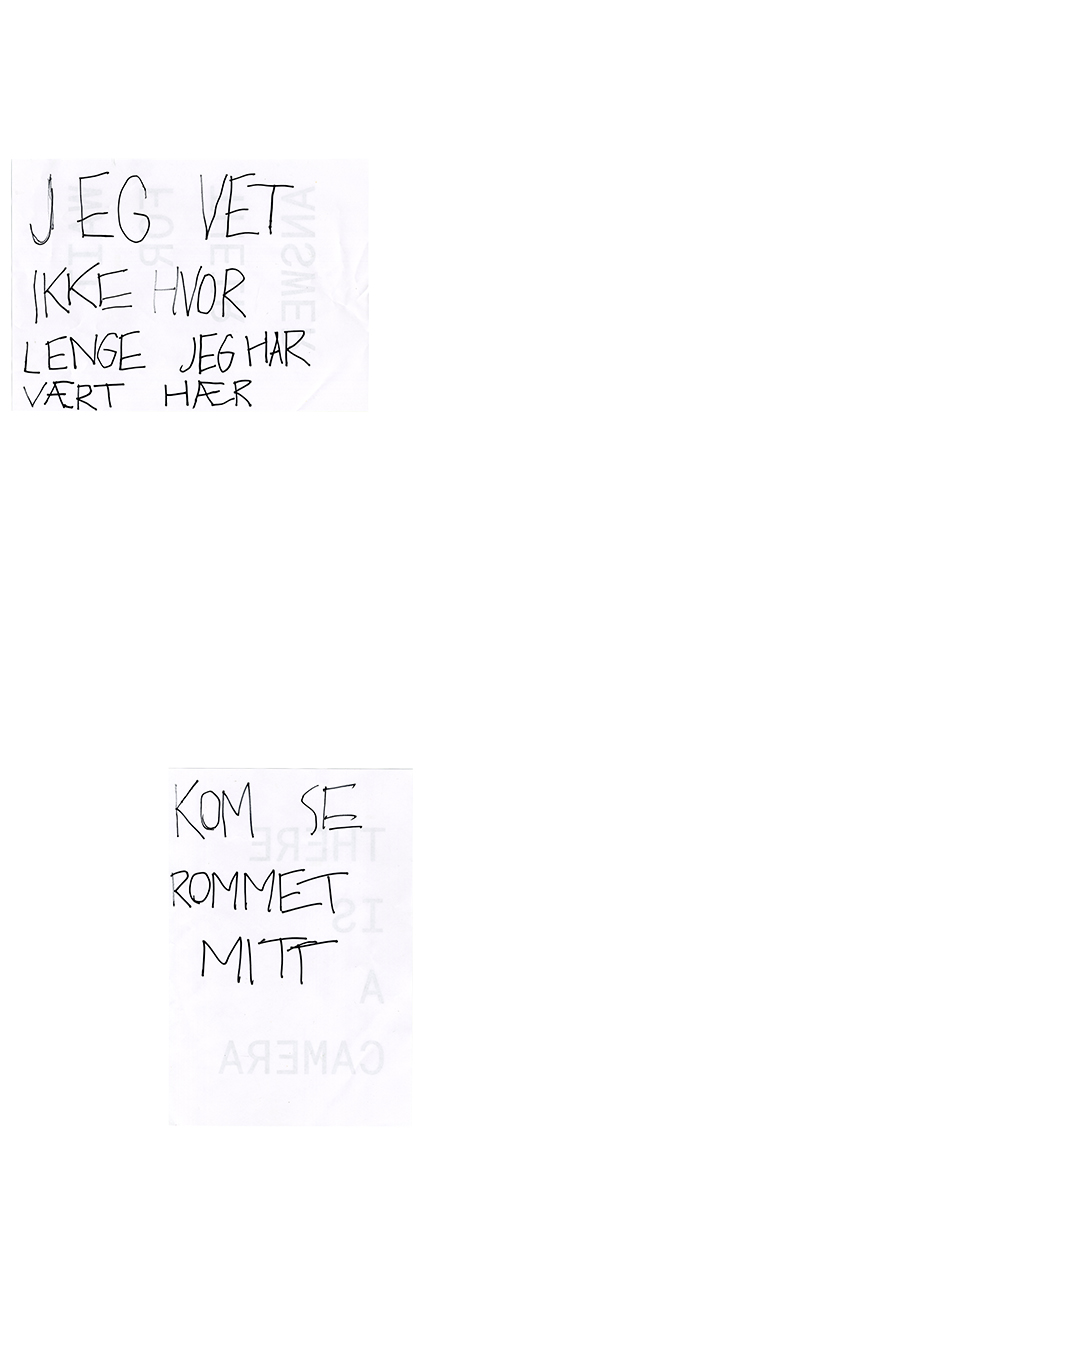 JEG VET
IKKE HVOR
LENGE JEG HAR
VÆRT HÆR
KOM SE
ROMMET
MITT
THERE
IS
A
CAMERA